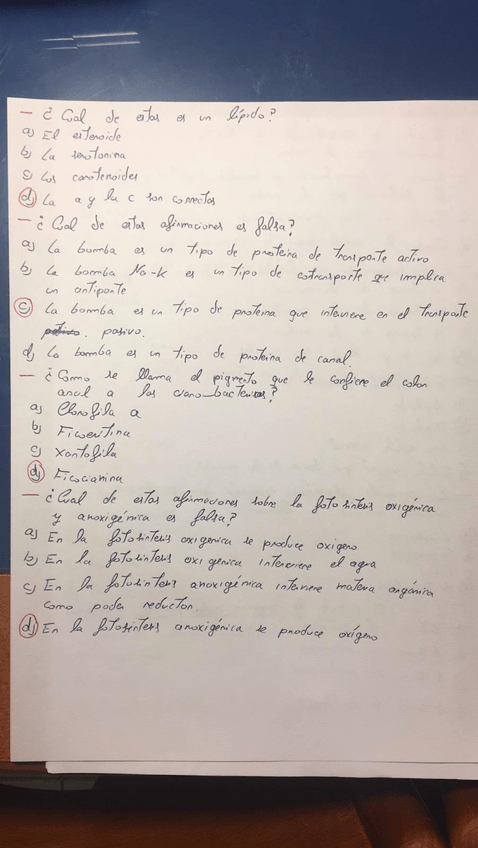 — ¿Cual de estas es un lípido?
a) El esteroide
b) La serotonina
c) Los carotenoides
d) La a y la c son correctas
— ¿Cual de estas afirmaciones es falsa?
a) La bomba es un tipo de proteina de transporte activo
b) La bomba Na-K es un tipo de cotransporte que implica
un antiporte
c) La bomba es un tipo de proteina que interviene en el transporte
pasivo.
d) La bomba es un tipo de proteina de canal.
— ¿Como se llama el pigmento que le confiere el color
azul a las cianobacterias?
a) Clorofila a
b) Ficoeritina
c) Xantofila
d) Ficocianina
— ¿Cual de estas afirmaciones sobre la fotosintesis oxigénica
y anoxigénica es falsa?
a) En la fotosintesis oxigenica se produce oxigeno
b) En la fotosintesis oxigenica interviene el agua
c) En la fotosintesis anoxigénica interviene materia orgánica
como poder reductor.
d) En la fotosintesis anoxigénica se produce oxígeno